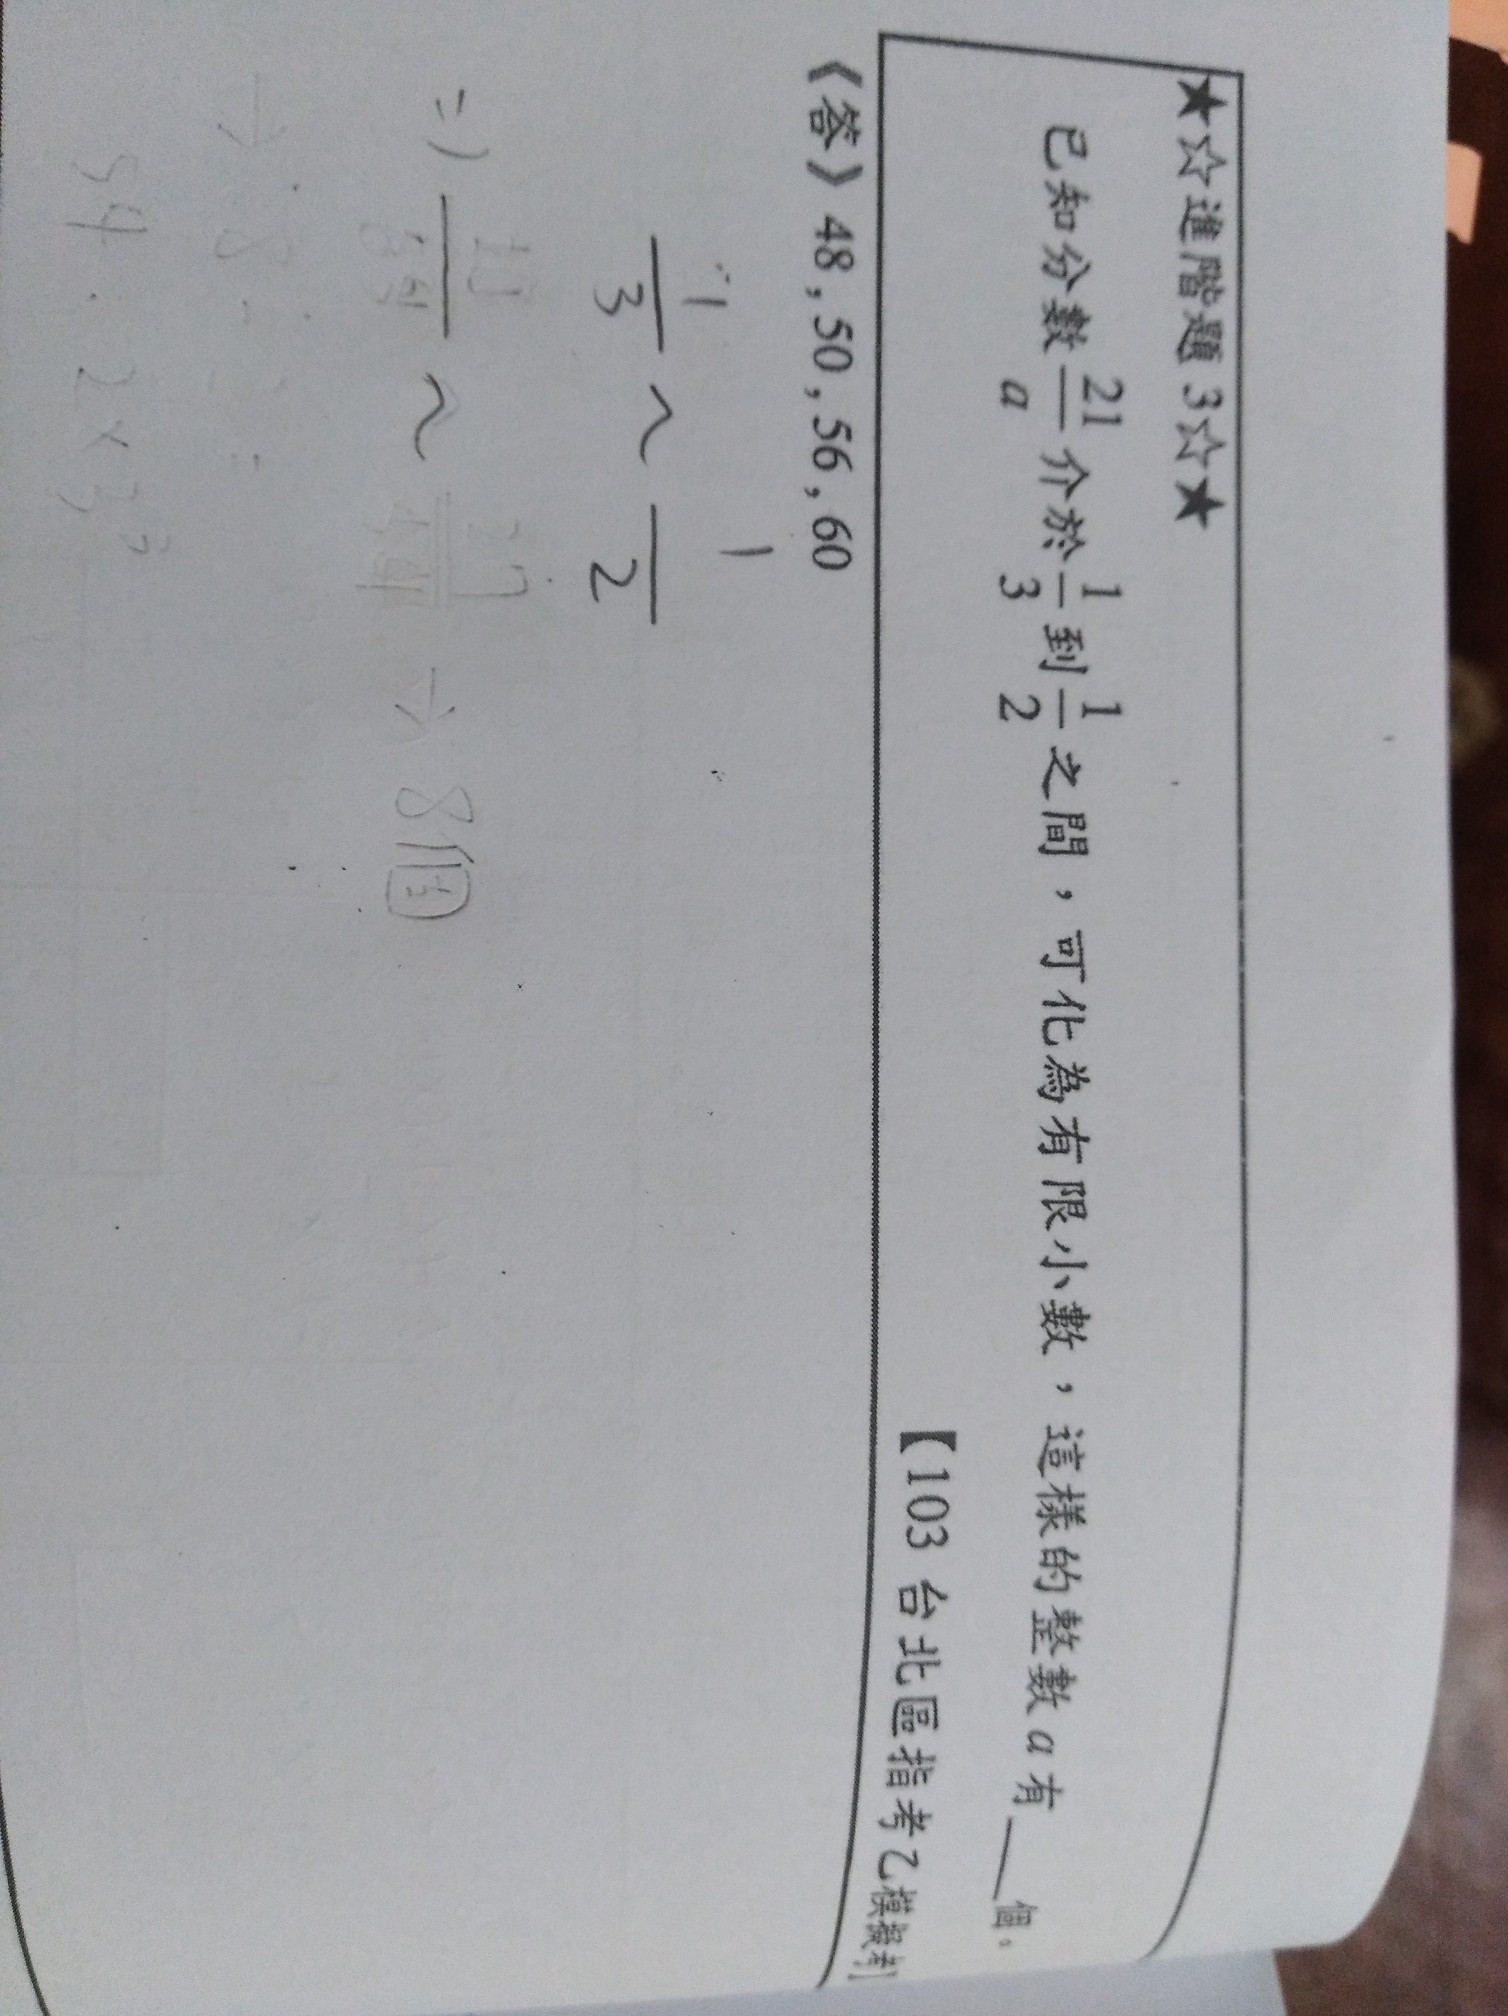 ★☆進階題 3☆★
已知分數 21/a 介於 1/3 到 1/2 之間，可化為有限小數，這樣的整數 a 有___個。
【103 台北區指考乙模擬考】
《答》48，50，56，60
1/3 ~ 1/2
→ 8個
→ 8
54 2×3³